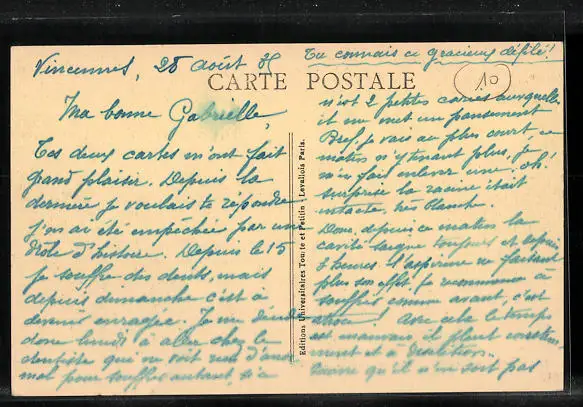 Vincennes, 28 août 35
Tu connais ce gracieux défilé!
CARTE POSTALE
10
Ma bonne Gabrielle,
Tes deux cartes m'ont fait
grand plaisir. Depuis la
dernière je voulais te répondre
j'en ai été empêchée par une
drôle d'histoire. Depuis le 15
je souffre des dents, mais
depuis dimanche c'est à
devenir enragée. Je me décide
donc lundi à aller chez le
dentiste qui ne voit rien d'
mal pour souffrir autant, si ce
n'est 2 petites caries auxquelles
il me met un pansement
Bref, je vais au plus court, ce
matin n'y tenant plus, je
m'en fait enlever une: oh!
surprise la racine était
intacte, très blanche.
Donc, depuis ce matin la
cavité saigne toujours et depuis
heures l'aspirine ne faisant
plus son effet, je recommence à
souffrir comme avant, c'est
atroce! Avec cela le temps
est mauvais, il pleut
ment et à
qu'il n'en soit pas
Editions Universitaires Tourte et Petitin, Levallois Paris.